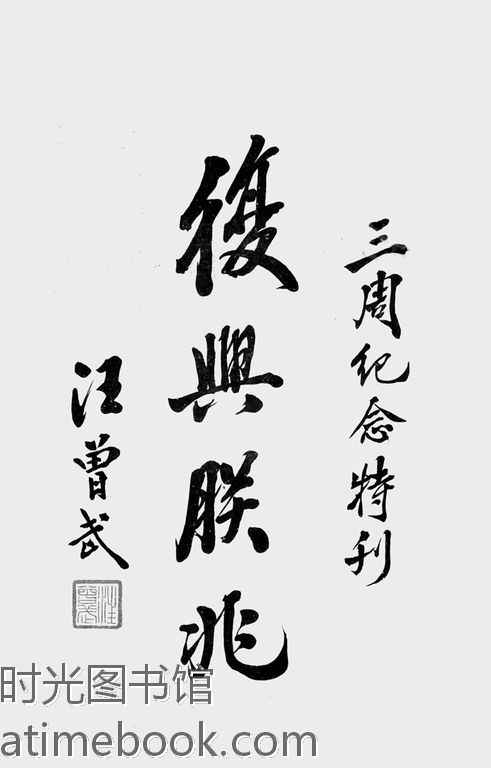 三周纪念特刊
復興朕兆
汪曾武
时光图书馆
atimebook.com